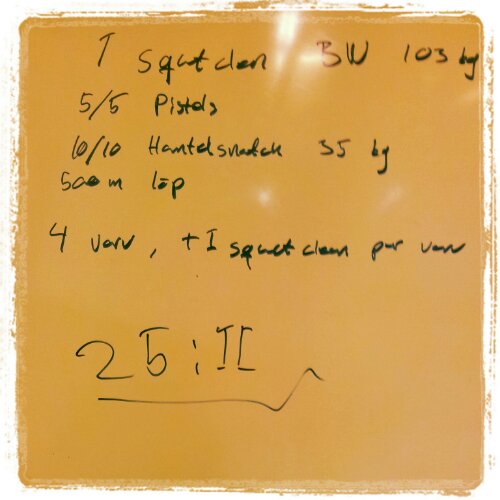 1 Squat clean BW 103 kg
5/5 Pistols
10/10 Hantelsnatch 35 kg
500 m löp
4 varv, +1 squat clean per varv
25:11